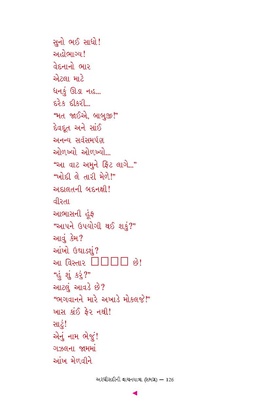 સુનો ભઈ સાધો!
અહોભાગ્ય!
વેદનાનો ભાર
એટલા માટે
ધનકું ઊડા નહ...
દરેક દીકરી...
"મત જાઈએ, બાબુજી!"
દેવદૂત અને સાંઈ
અનન્ય સર્વસમર્પણ
ઓળખ્યો ઓળખ્યો...
"આ વાટ અમુને ફિટ લાગે..."
"ખોદી લે તારી મેળે!"
અદાલતની બદનક્ષી!
વીરતા
આભાસની હૂંફ
"આપને ઉપયોગી થઈ શકું?"
આવું કેમ?
આંખો ઉઘાડશું?
આ વિસ્તાર □□□□ છે!
"હું શું કરું?"
આટલું આવડે છે?
"ભગવાનને મારે અખાડે મોકલજે!"
ખાસ કાંઈ ફેર નથી!
સાટું!
એનું નામ ભેજું!
ગઝલના જામમાં
આંખ મેળવીને
— 126